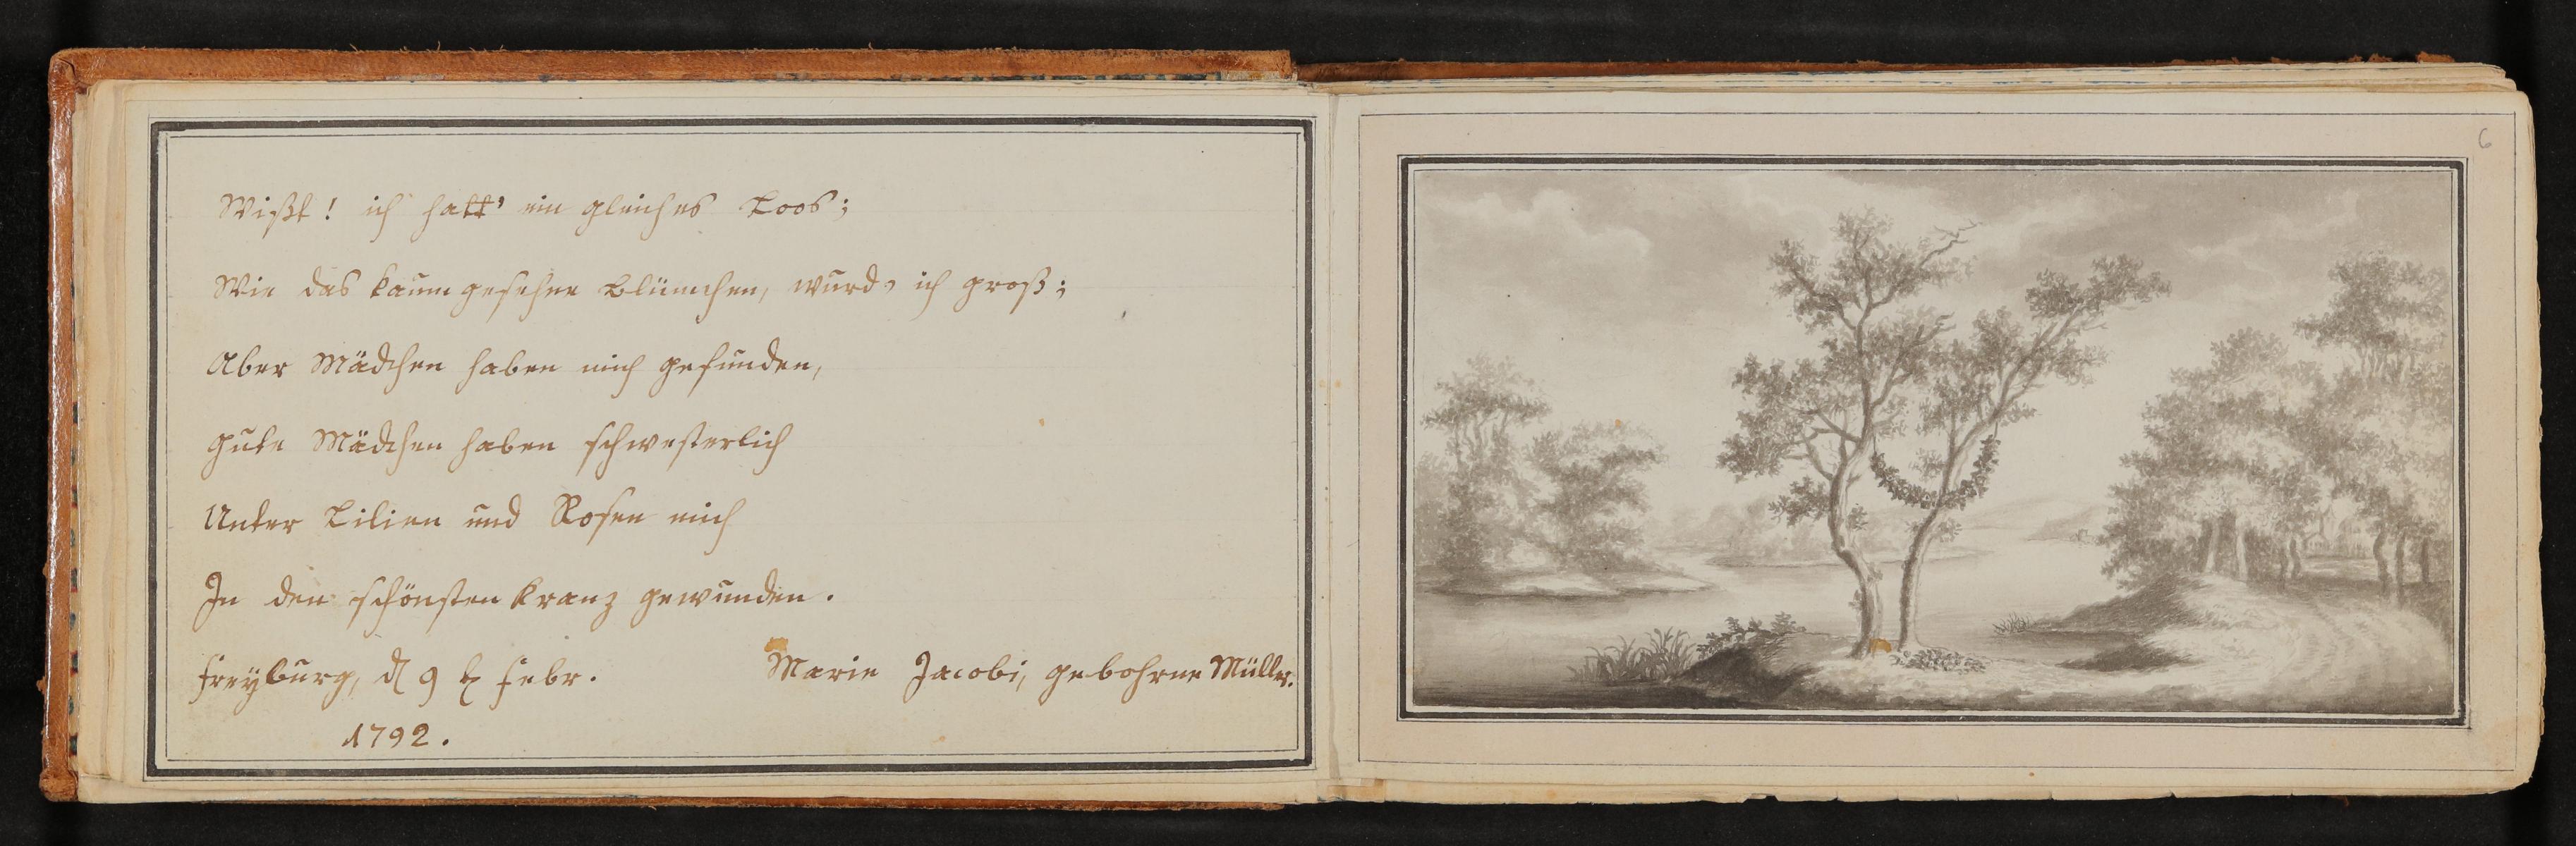 Wißt! ich hatt' ein gleiches Loos;
Wie das kaum gesehne Blümchen, wurd' ich groß;
Aber Mädchen haben mich gefunden,
Gute Mädchen haben schwesterlich
Unter Lilien und Rosen mich
In den schönsten Kranz gewunden.
Freyburg, d 9 t Febr.
Marie Jacobi, gebohrne Müller.
1792.
6